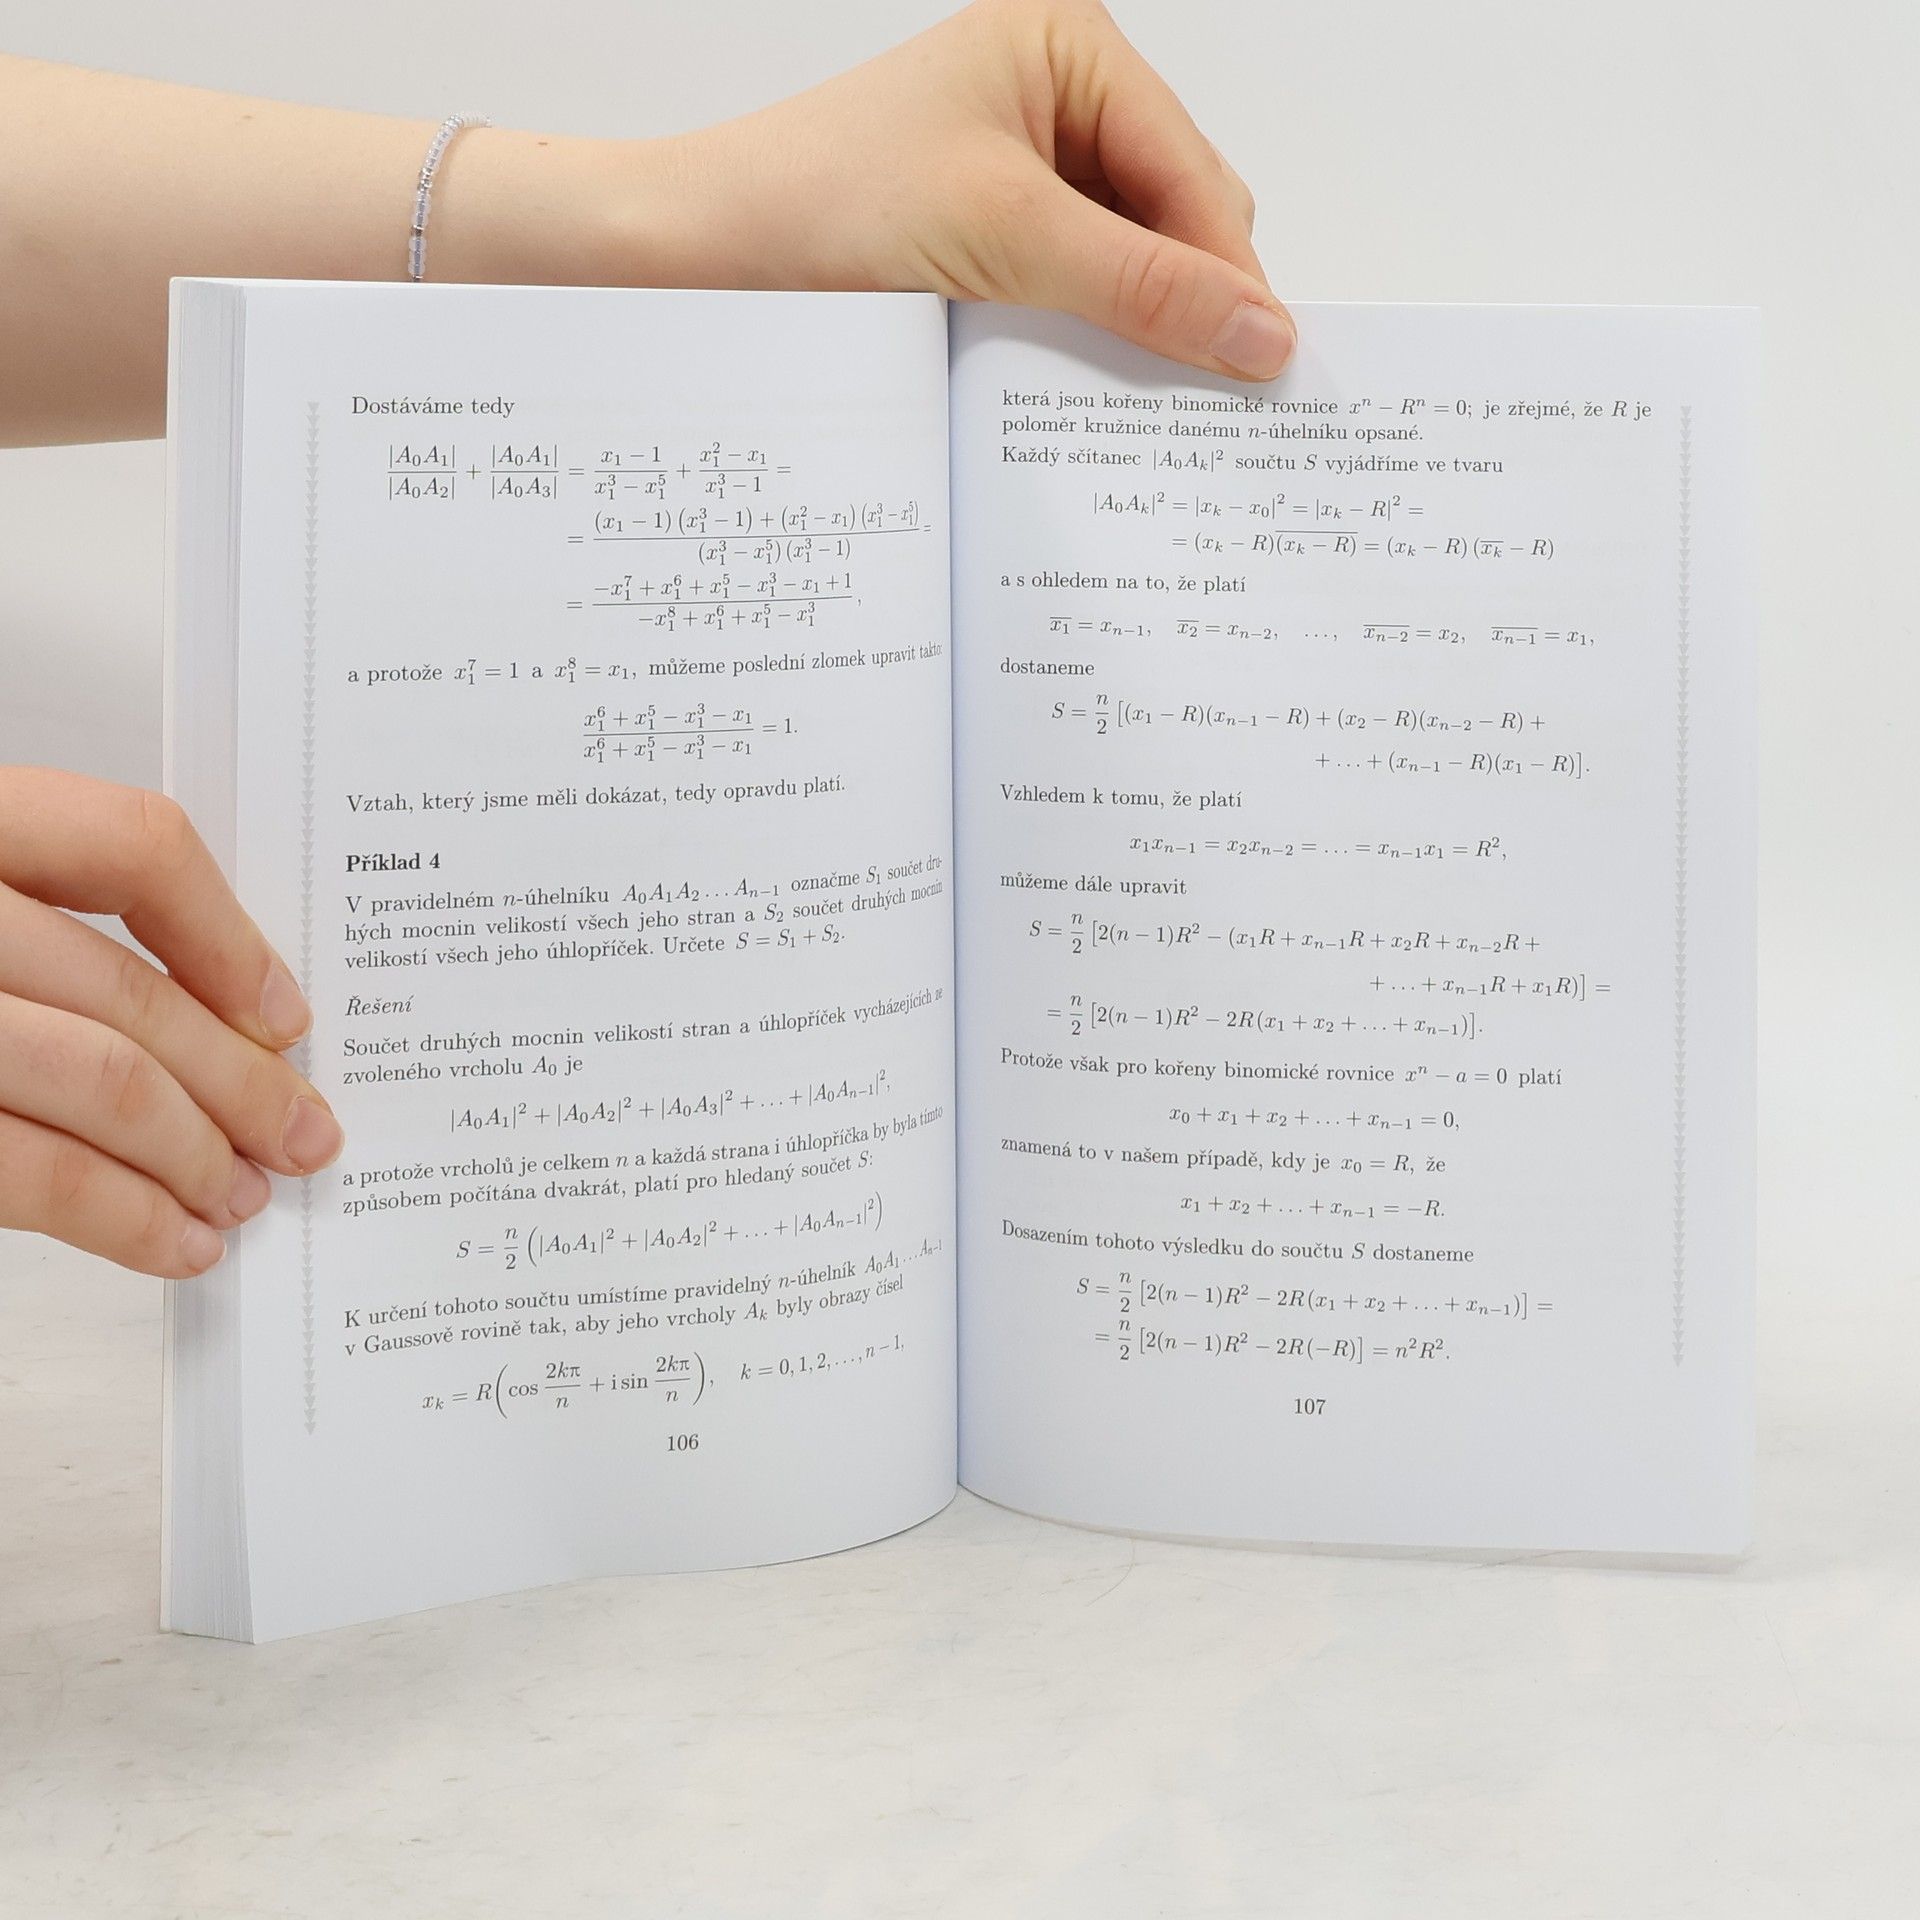 Dostáváme tedy
|A₀A₁|/|A₀A₂| + |A₀A₁|/|A₀A₃| = (x₁ − 1)/(x₁³ − x₁⁵) + (x₁² − x₁)/(x₁³ − 1) =
= ((x₁ − 1)(x₁³ − 1) + (x₁² − x₁)(x₁³ − x₁⁵))/((x₁³ − x₁⁵)(x₁³ − 1)) =
= (−x₁⁷ + x₁⁶ + x₁⁵ − x₁³ − x₁ + 1)/(−x₁⁸ + x₁⁶ + x₁⁵ − x₁³),
a protože x₁⁷ = 1 a x₁⁸ = x₁, můžeme poslední zlomek upravit takto:
(x₁⁶ + x₁⁵ − x₁³ − x₁)/(x₁⁶ + x₁⁵ − x₁³ − x₁) = 1.
Vztah, který jsme měli dokázat, tedy opravdu platí.
Příklad 4
V pravidelném n-úhelníku A₀A₁A₂…Aₙ₋₁ označme S₁ součet dru-
hých mocnin velikostí všech jeho stran a S₂ součet druhých mocnin
velikostí všech jeho úhlopříček. Určete S = S₁ + S₂.
Řešení
Součet druhých mocnin velikostí stran a úhlopříček vycházejících ze
zvoleného vrcholu A₀ je
|A₀A₁|² + |A₀A₂|² + |A₀A₃|² + … + |A₀Aₙ₋₁|²,
a protože vrcholů je celkem n a každá strana i úhlopříčka by byla tímto
způsobem počítána dvakrát, platí pro hledaný součet S:
S = n/2 (|A₀A₁|² + |A₀A₂|² + … + |A₀Aₙ₋₁|²)
K určení tohoto součtu umístíme pravidelný n-úhelník A₀A₁…Aₙ₋₁
v Gaussově rovině tak, aby jeho vrcholy Aₖ byly obrazy čísel
xₖ = R(cos 2kπ/n + i sin 2kπ/n), k = 0, 1, 2, …, n − 1,
106
která jsou kořeny binomické rovnice xⁿ − Rⁿ = 0; je zřejmé, že R je
poloměr kružnice danému n-úhelníku opsané.
Každý sčítanec |A₀Aₖ|² součtu S vyjádříme ve tvaru
|A₀Aₖ|² = |xₖ − x₀|² = |xₖ − R|² =
= (xₖ − R)(x̅ₖ̅ ̅−̅ ̅R̅) = (xₖ − R)(x̅ₖ̅ − R)
a s ohledem na to, že platí
x̅₁̅ = xₙ₋₁, x̅₂̅ = xₙ₋₂, …, x̅ₙ̅₋̅₂̅ = x₂, x̅ₙ̅₋̅₁̅ = x₁,
dostaneme
S = n/2 [(x₁ − R)(xₙ₋₁ − R) + (x₂ − R)(xₙ₋₂ − R) +
+ … + (xₙ₋₁ − R)(x₁ − R)].
Vzhledem k tomu, že platí
x₁xₙ₋₁ = x₂xₙ₋₂ = … = xₙ₋₁x₁ = R²,
můžeme dále upravit
S = n/2 [2(n − 1)R² − (x₁R + xₙ₋₁R + x₂R + xₙ₋₂R +
+ … + xₙ₋₁R + x₁R)] =
= n/2 [2(n − 1)R² − 2R(x₁ + x₂ + … + xₙ₋₁)].
Protože však pro kořeny binomické rovnice xⁿ − a = 0 platí
x₀ + x₁ + x₂ + … + xₙ₋₁ = 0,
znamená to v našem případě, kdy je x₀ = R, že
x₁ + x₂ + … + xₙ₋₁ = −R.
Dosazením tohoto výsledku do součtu S dostaneme
S = n/2 [2(n − 1)R² − 2R(x₁ + x₂ + … + xₙ₋₁)] =
= n/2 [2(n − 1)R² − 2R(−R)] = n²R².
107